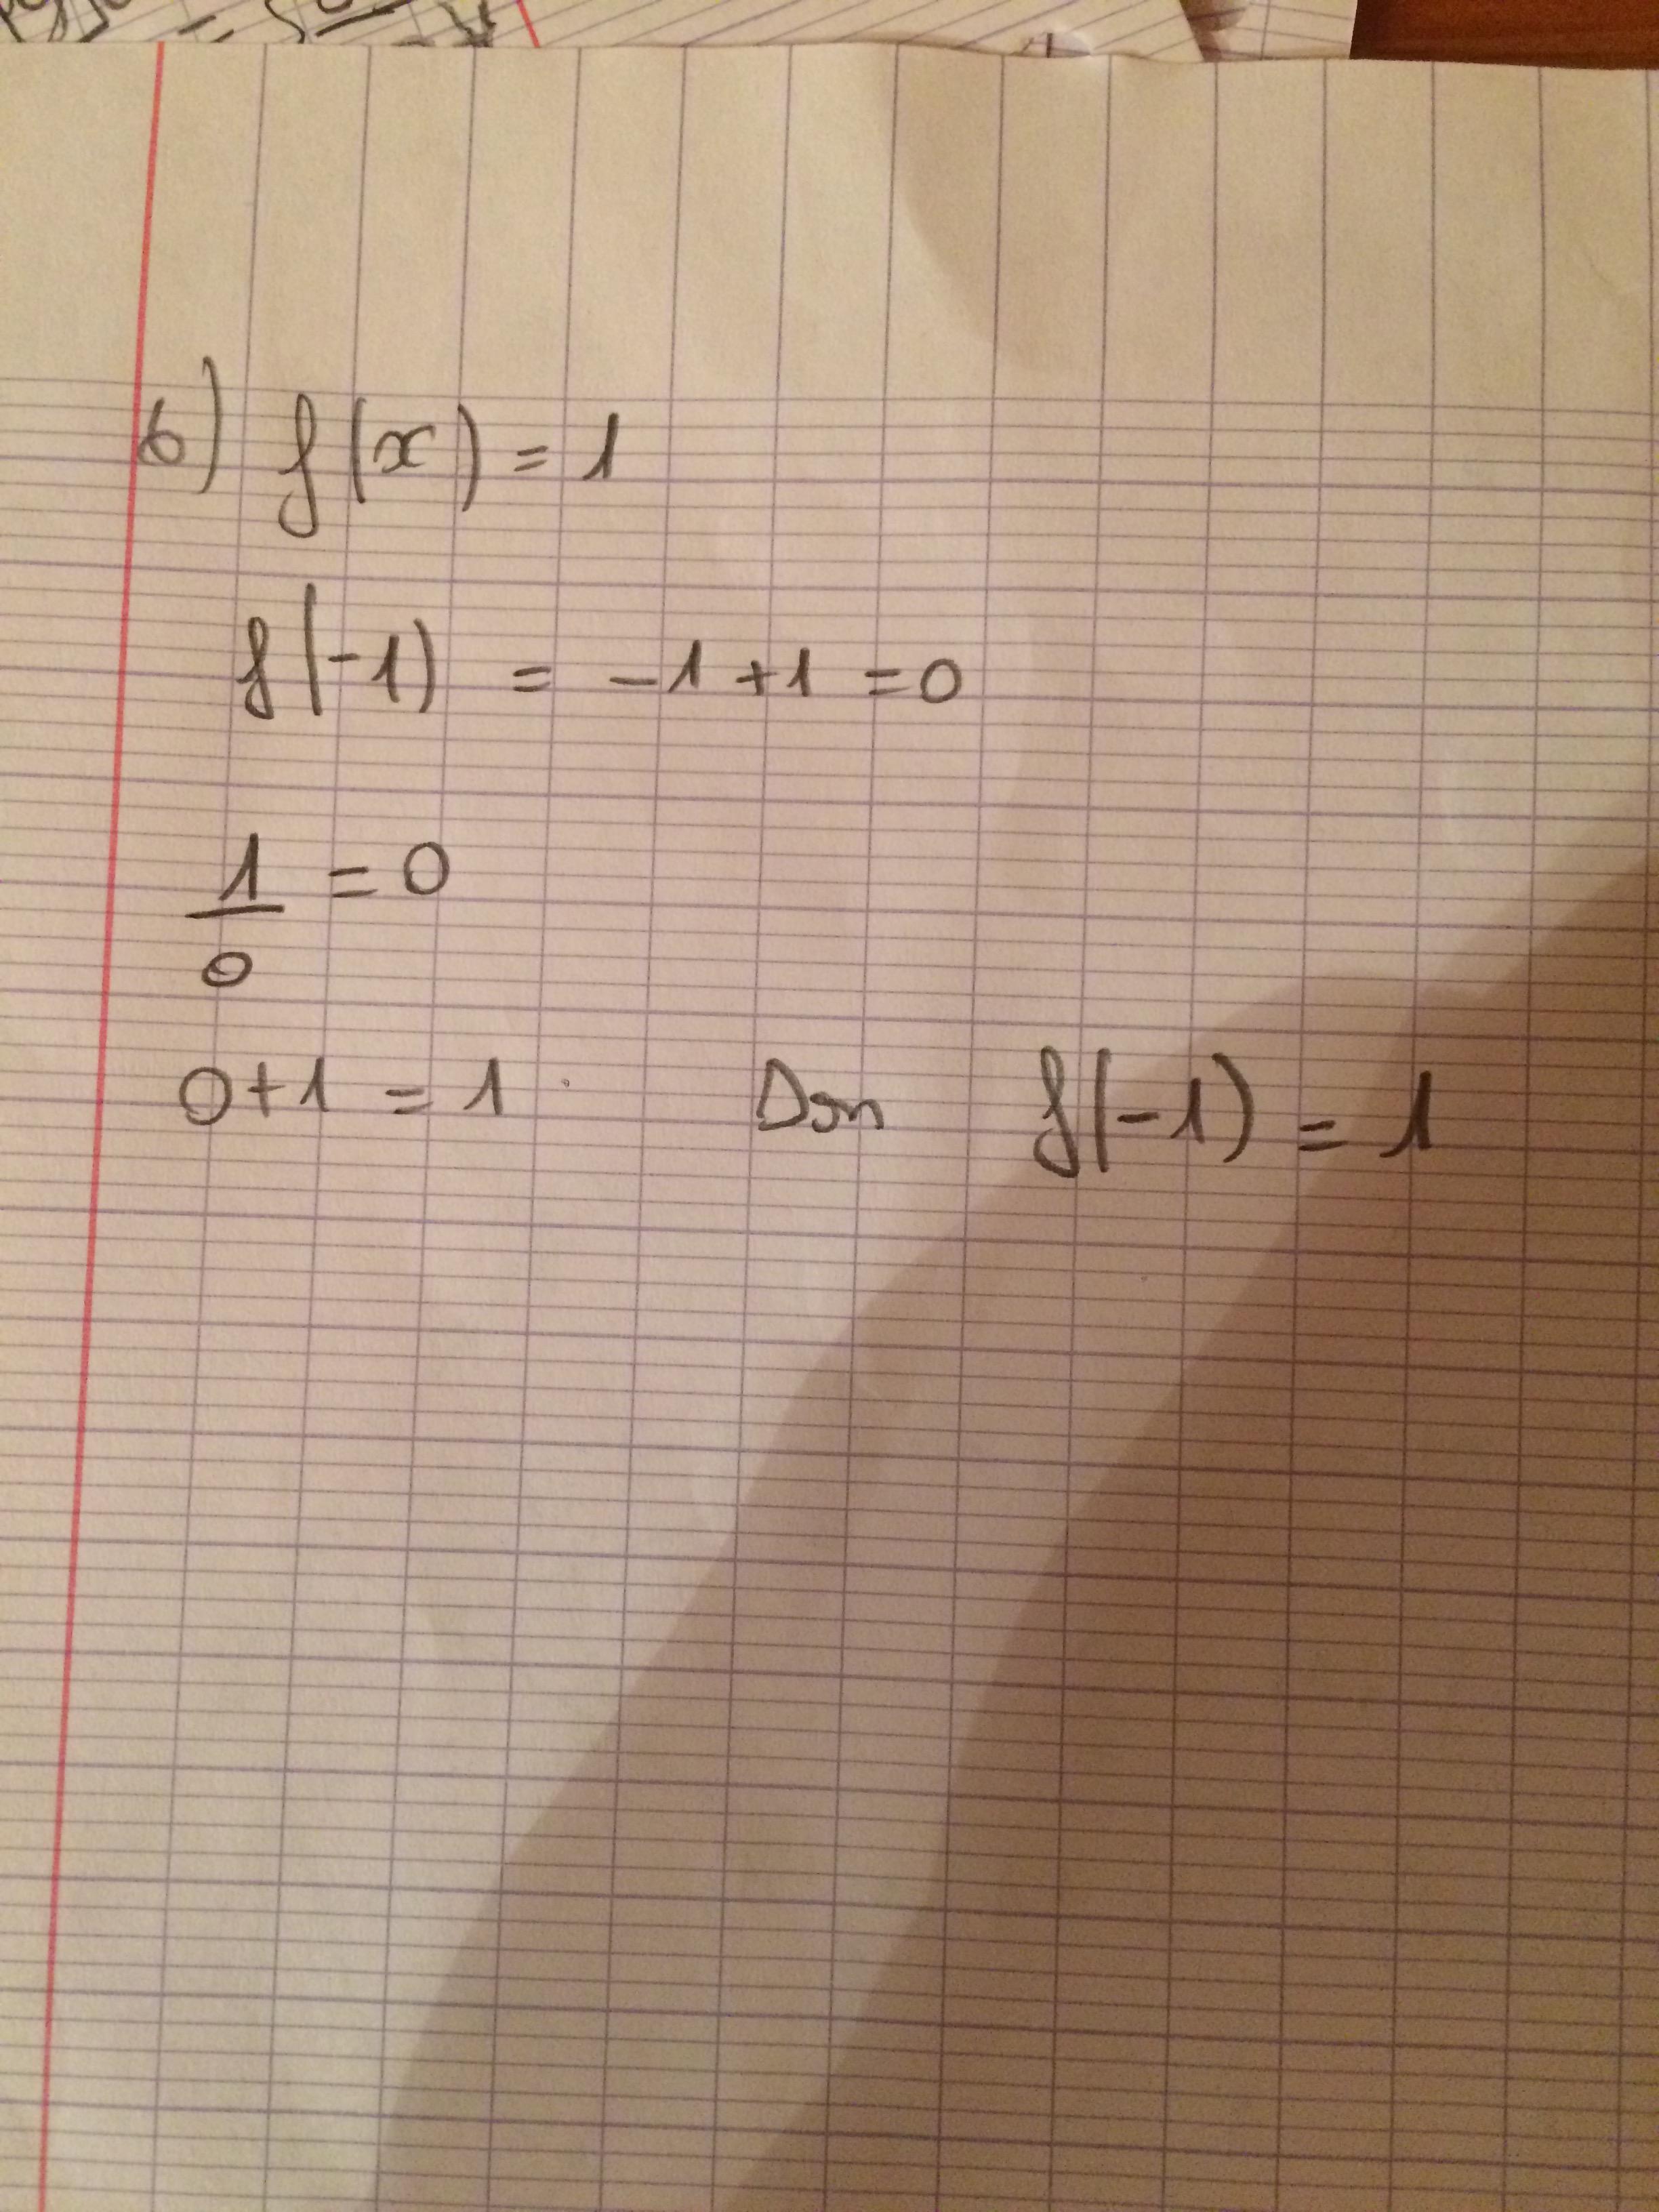 6) f(x) = 1
f(-1) = -1 + 1 = 0
1/0 = 0
0 + 1 = 1. Don f(-1) = 1